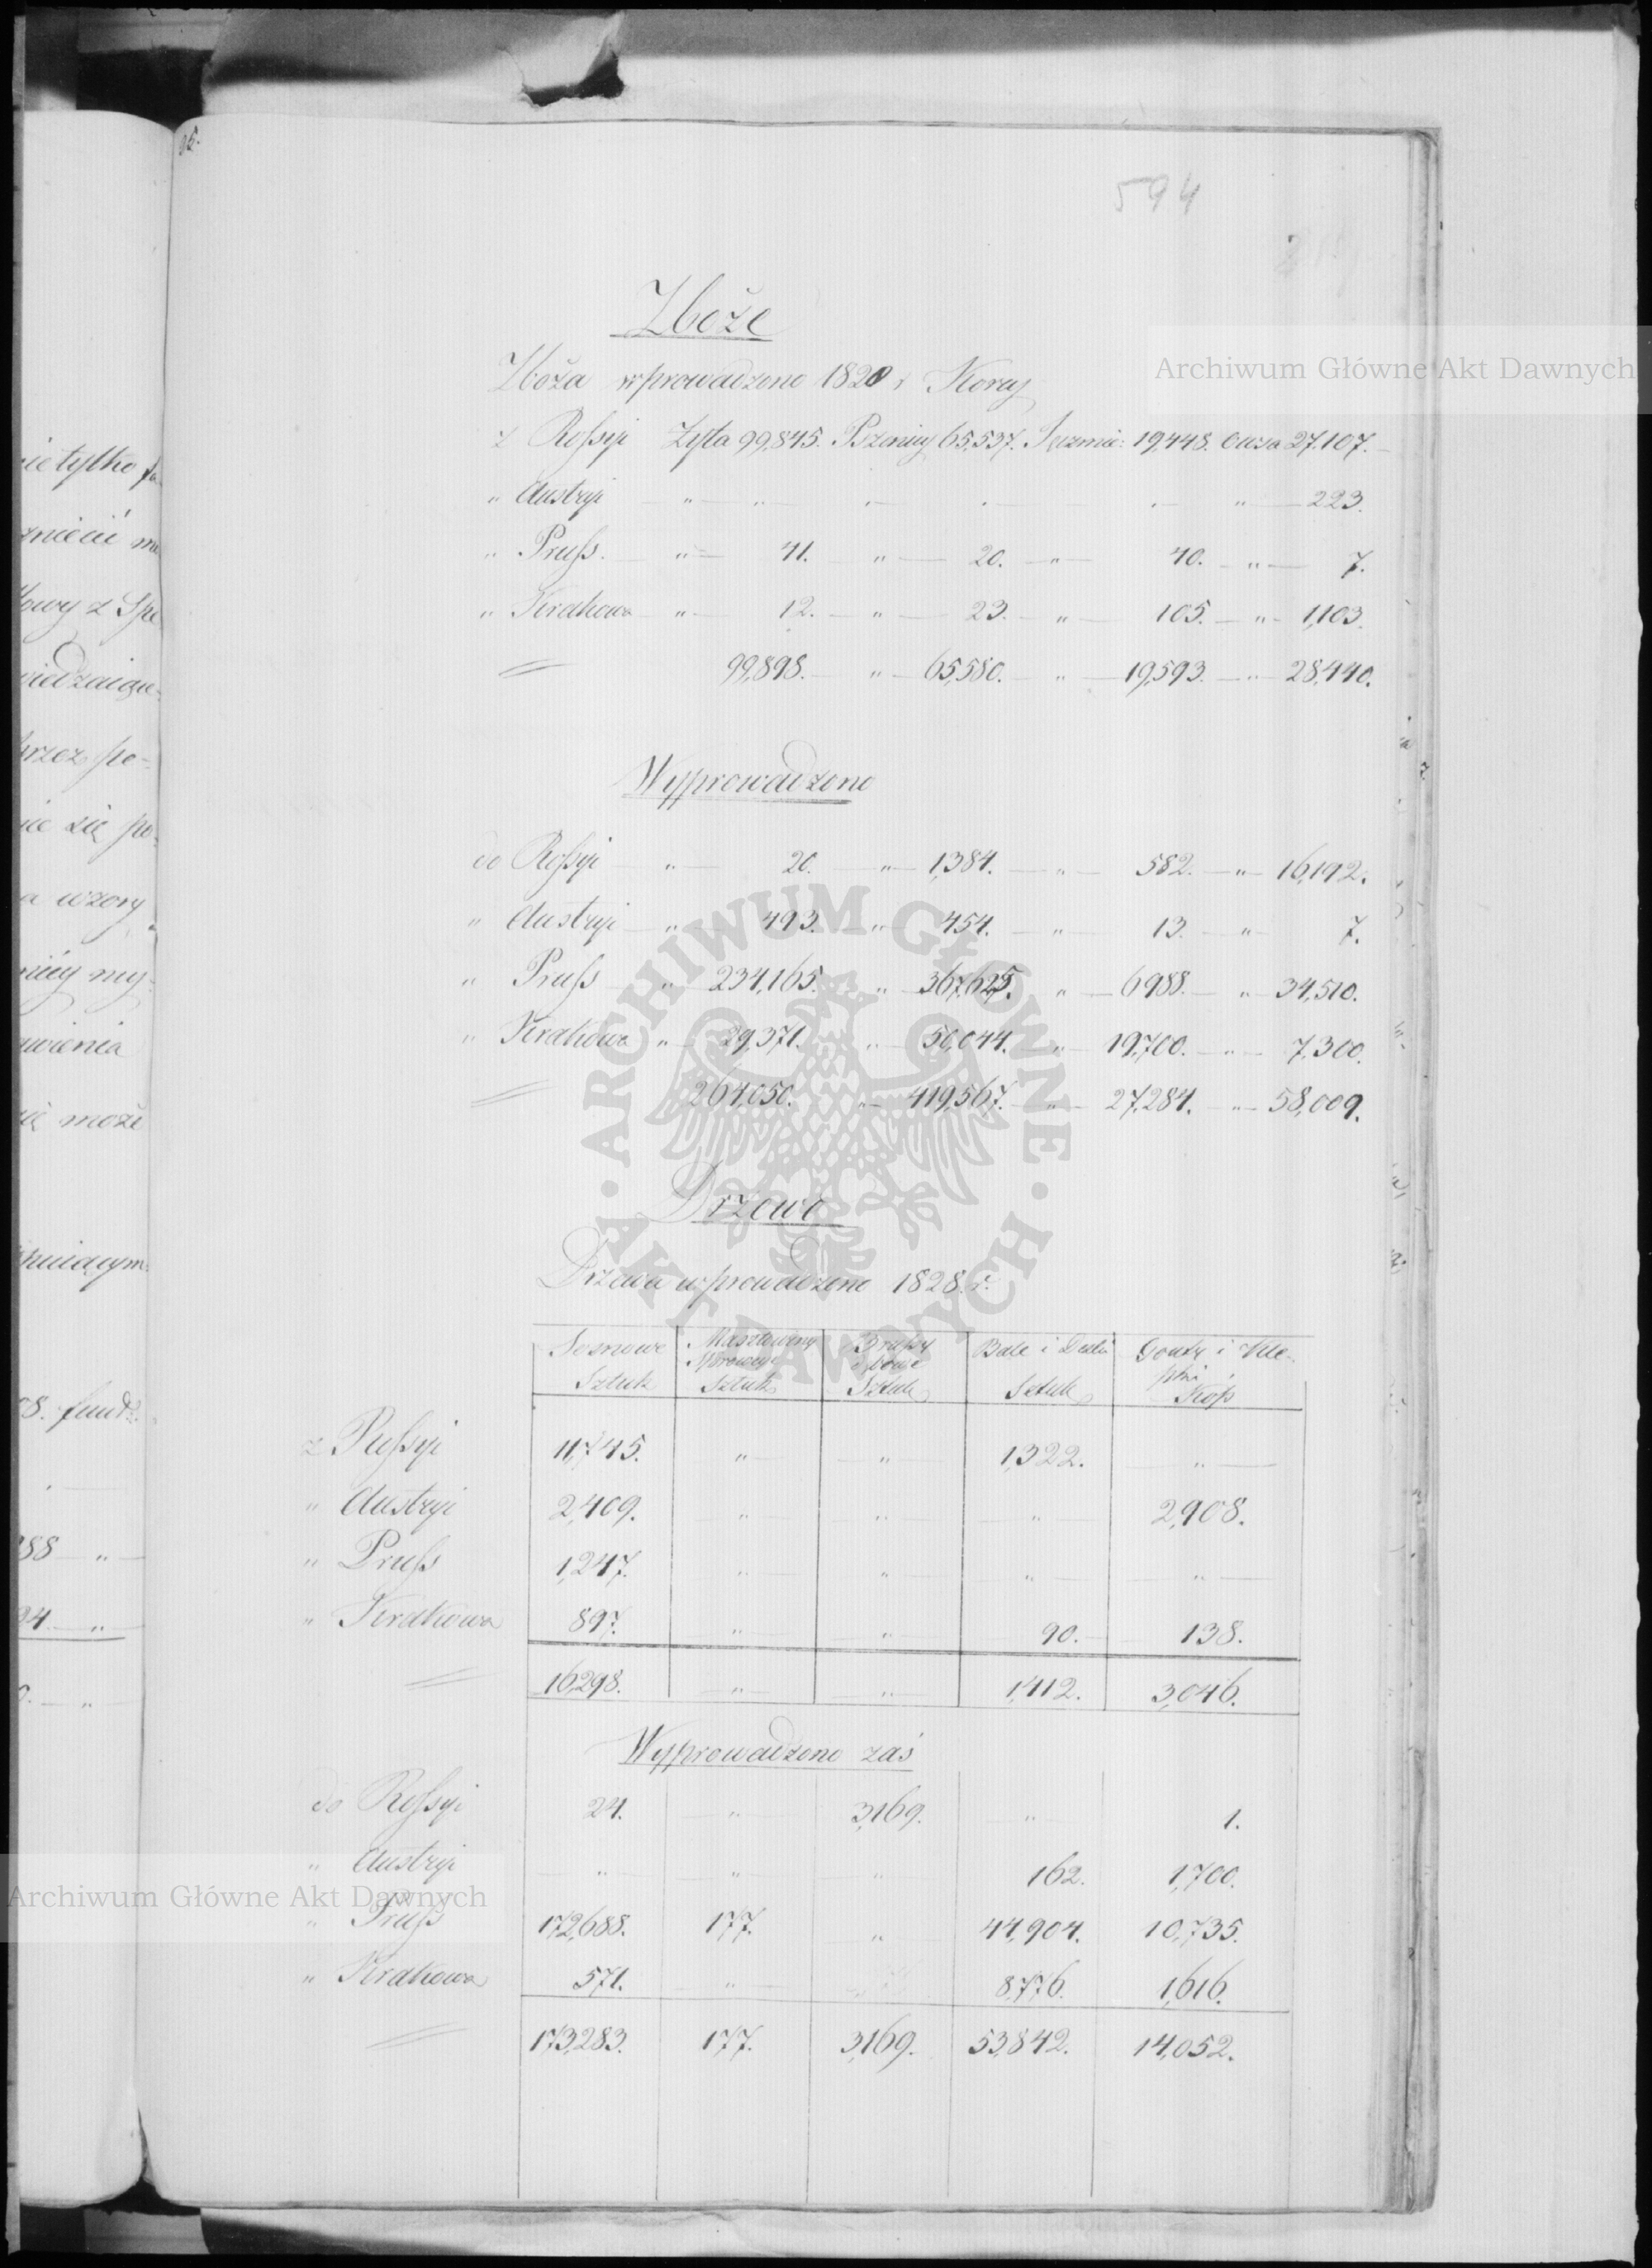 594
Zboże
Zboża wprowadzono 1828 r Korcy
z Rossyi Żyta 99,845. Pszenicy 65,537. Jęczmie: 19,448. Owsa 27.107.
" Austryi — " — " — — — " — 223.
" Pruss. — " — 41. — " — 20. — " — 40. — " — 7.
" Krakowa — " — 12. — " — 23. — " — 105. — " — 1,103.
99,898. — " — 65,580. — " — 19,593. — " — 28,440.
Wyprowadzono
do Rossyi — " — 20. — " — 1,384. — " — 582. — " — 16,192.
" Austryi — " — 493. — " — 454. — " — 13. — " — 7.
" Pruss — " — 234,165. " — 367,625. " — 6988. — " — 34,510.
" Krakowa " — 29,371. — " — 50,044. — " — 19,700. — " — 7,300.
264,050. — " — 419,567. — " — 27,284. — " — 58,009.
Drzewo
Drzewa wprowadzono 1828. r.
Sosnowe Sztuk Masztowiny Sztuk Brussy Sztuk Bale i Dyle Sztuk Gonty i Klepki Kóp
z Rossyi 11,745. " — " — 1,322. — " —
" Austryi 2,409. " — " — " — 2,908.
" Pruss 1,247. " — " — " — " —
" Krakowa 897. " — " — 90. — 138.
16,298. — " — " — 1,412. 3,046.
Wyprowadzono zaś
do Rossyi 24. — " — 3,169. — " — 1.
" Austryi — " — " — " — 162. 1,700.
" Pruss 172,688. 177. " — 44,904. 10,735.
" Krakowa 571. " — 8,776. 1,616.
173,283. 177. 3,169. 53,842. 14,052.
Archiwum Główne Akt Dawnych
ARCHIWUM GŁÓWNE · AKT DAWNYCH ·
Archiwum Główne Akt Dawnych